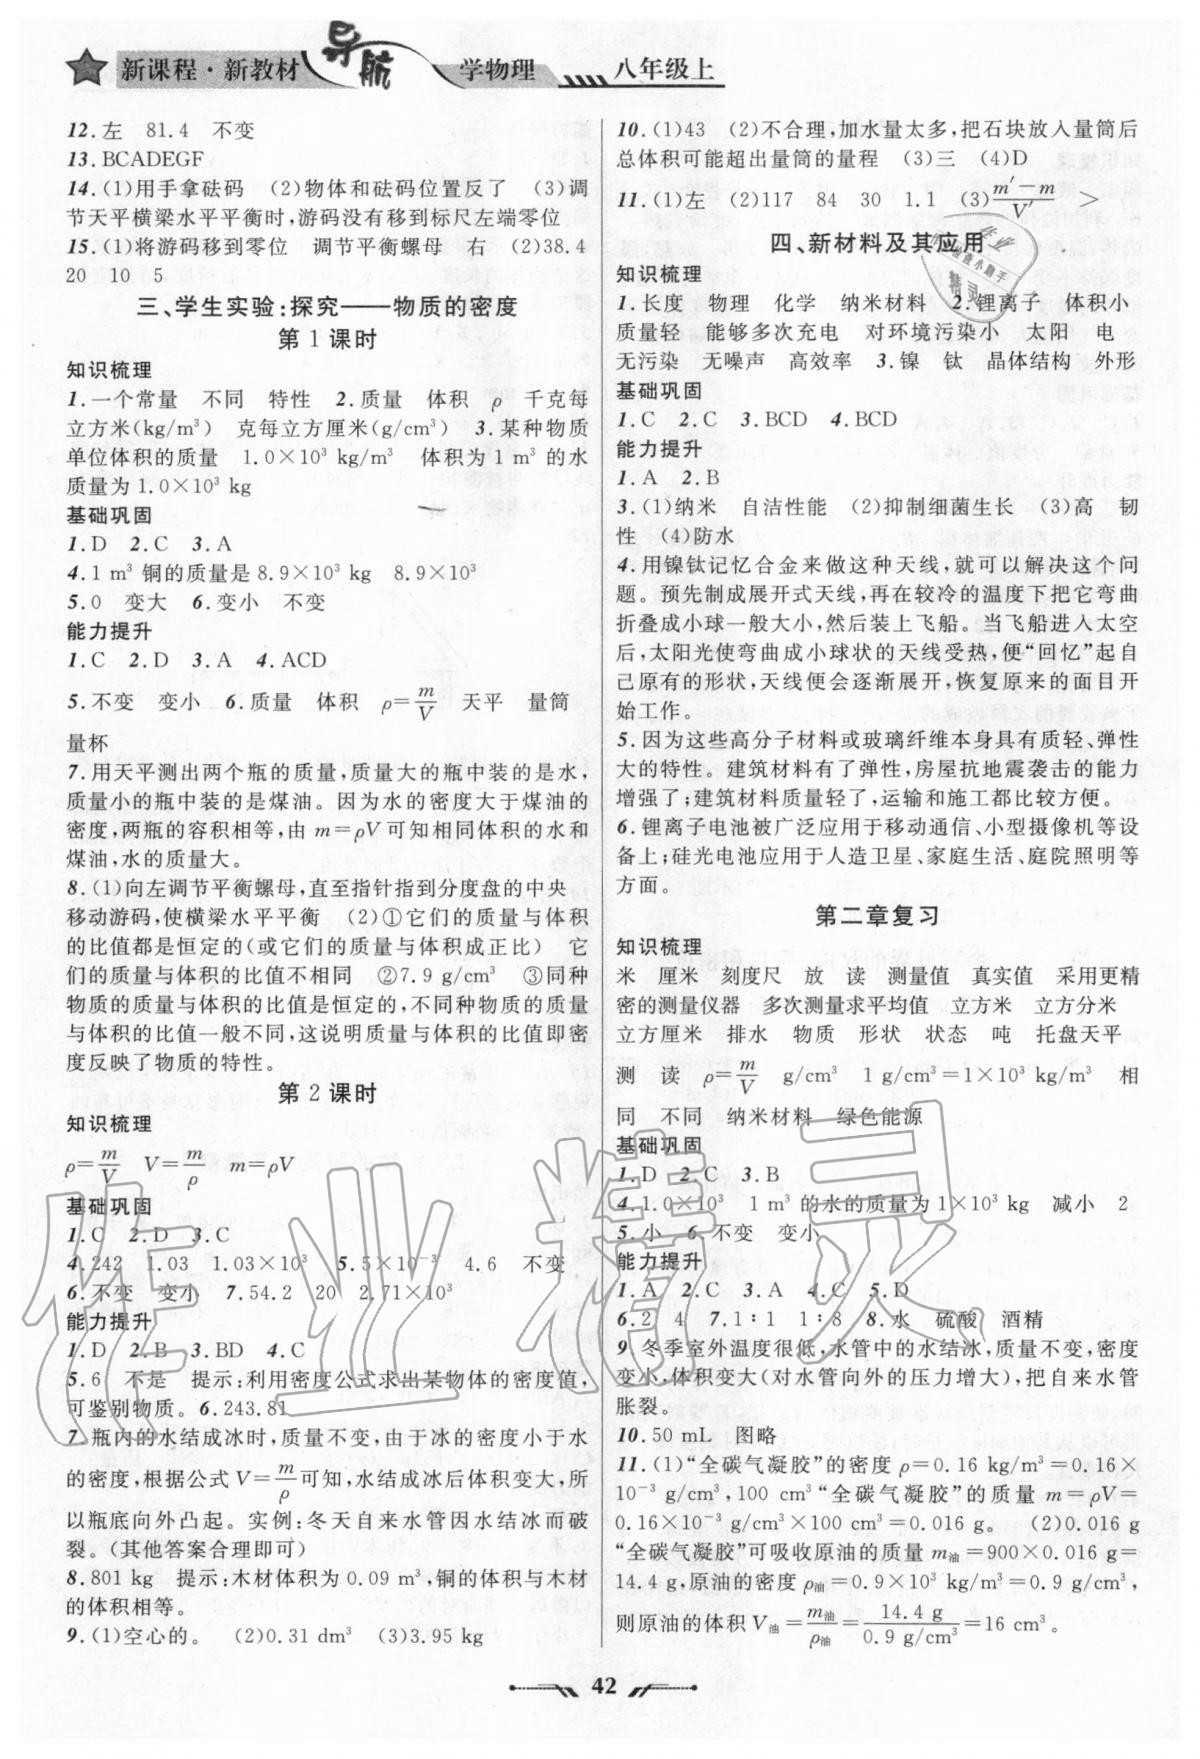 新课程·新教材 导航 学物理 八年级上
12.左 81.4 不变
13.BCADEGF
14.(1)用手拿砝码 (2)物体和砝码位置反了 (3)调
节天平横梁水平平衡时,游码没有移到标尺左端零位
15.(1)将游码移到零位 调节平衡螺母 右 (2)38.4
20 10 5
三、学生实验:探究——物质的密度
第1课时
知识梳理
1.一个常量 不同 特性 2.质量 体积 ρ 千克每
立方米(kg/m³) 克每立方厘米(g/cm³) 3.某种物质
单位体积的质量 1.0×10³ kg/m³ 体积为1 m³的水
质量为1.0×10³ kg
基础巩固
1.D 2.C 3.A
4.1 m³铜的质量是8.9×10³ kg 8.9×10³
5.0 变大 6.变小 不变
能力提升
1.C 2.D 3.A 4.ACD
5.不变 变小 6.质量 体积 ρ=m/V 天平 量筒
量杯
7.用天平测出两个瓶的质量,质量大的瓶中装的是水,
质量小的瓶中装的是煤油。因为水的密度大于煤油的
密度,两瓶的容积相等,由m=ρV可知相同体积的水和
煤油,水的质量大。
8.(1)向左调节平衡螺母,直至指针指到分度盘的中央
移动游码,使横梁水平平衡 (2)①它们的质量与体积
的比值都是恒定的(或它们的质量与体积成正比) 它
们的质量与体积的比值不相同 ②7.9 g/cm³ ③同种
物质的质量与体积的比值是恒定的,不同种物质的质量
与体积的比值一般不同,这说明质量与体积的比值即密
度反映了物质的特性。
第2课时
知识梳理
ρ=m/V V=m/ρ m=ρV
基础巩固
1.C 2.D 3.C
4.242 1.03 1.03×10³ 5.5×10⁻³ 4.6 不变
6.不变 变小 7.54.2 20 2.71×10³
能力提升
1.D 2.B 3.BD 4.C
5.6 不是 提示:利用密度公式求出某物体的密度值,
可鉴别物质。6.243.81
7.瓶内的水结成冰时,质量不变,由于冰的密度小于水
的密度,根据公式V=m/ρ可知,水结成冰后体积变大,所
以瓶底向外凸起。实例:冬天自来水管因水结冰而破
裂。(其他答案合理即可)
8.801 kg 提示:木材体积为0.09 m³,铜的体积与木材
的体积相等。
9.(1)空心的。 (2)0.31 dm³ (3)3.95 kg
10.(1)43 (2)不合理,加水量太多,把石块放入量筒后
总体积可能超出量筒的量程 (3)三 (4)D
11.(1)左 (2)117 84 30 1.1 (3)m′−m/V′ >
四、新材料及其应用
知识梳理
1.长度 物理 化学 纳米材料 2.锂离子 体积小
质量轻 能够多次充电 对环境污染小 太阳 电
无污染 无噪声 高效率 3.镍 钛 晶体结构 外形
基础巩固
1.C 2.C 3.BCD 4.BCD
能力提升
1.A 2.B
3.(1)纳米 自洁性能 (2)抑制细菌生长 (3)高 韧
性 (4)防水
4.用镍钛记忆合金来做这种天线,就可以解决这个问
题。预先制成展开式天线,再在较冷的温度下把它弯曲
折叠成小球一般大小,然后装上飞船。当飞船进入太空
后,太阳光使弯曲成小球状的天线受热,便“回忆”起自
己原有的形状,天线便会逐渐展开,恢复原来的面目开
始工作。
5.因为这些高分子材料或玻璃纤维本身具有质轻、弹性
大的特性。建筑材料有了弹性,房屋抗地震袭击的能力
增强了;建筑材料质量轻了,运输和施工都比较方便。
6.锂离子电池被广泛应用于移动通信、小型摄像机等设
备上;硅光电池应用于人造卫星、家庭生活、庭院照明等
方面。
第二章复习
知识梳理
米 厘米 刻度尺 放 读 测量值 真实值 采用更精
密的测量仪器 多次测量求平均值 立方米 立方分米
立方厘米 排水 物质 形状 状态 吨 托盘天平
测 读 ρ=m/V g/cm³ 1 g/cm³=1×10³ kg/m³ 相
同 不同 纳米材料 绿色能源
基础巩固
1.D 2.C 3.B
4.1.0×10³ 1 m³的水的质量为1×10³ kg 减小 2
5.小 6.不变 变小
能力提升
1.A 2.C 3.A 4.C 5.D
6.2 4 7.1∶1 1∶8 8.水 硫酸 酒精
9.冬季室外温度很低,水管中的水结冰,质量不变,密度
变小,体积变大(对水管向外的压力增大),把自来水管
胀裂。
10.50 mL 图略
11.(1)“全碳气凝胶”的密度ρ=0.16 kg/m³=0.16×
10⁻³ g/cm³,100 cm³“全碳气凝胶”的质量m=ρV=
0.16×10⁻³ g/cm³×100 cm³=0.016 g。 (2)0.016 g
“全碳气凝胶”可吸收原油的质量m油=900×0.016 g=
14.4 g,原油的密度ρ油=0.9×10³ kg/m³=0.9 g/cm³,
则原油的体积V油=m油/ρ油=14.4 g/0.9 g/cm³=16 cm³。
42
作业精灵